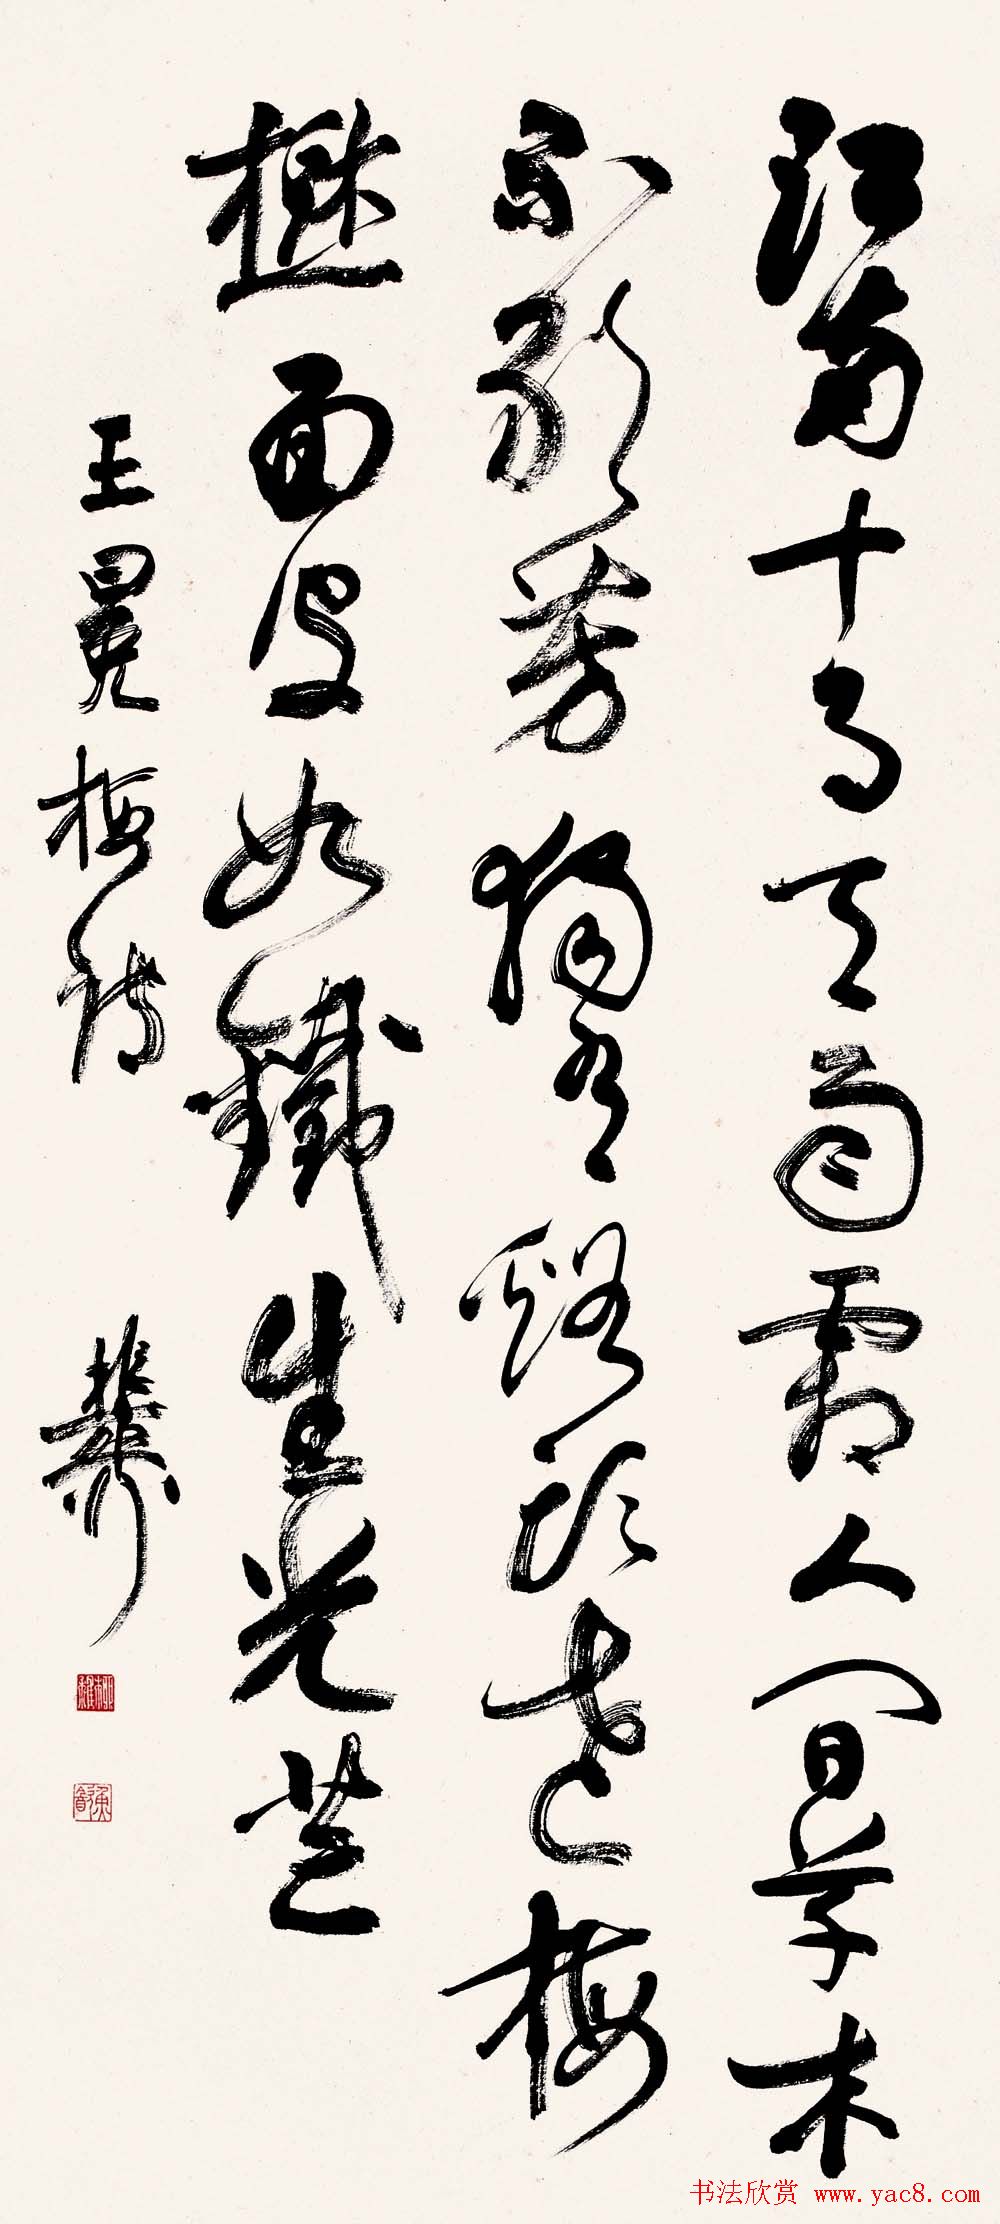 江南十月天雨霜人间草木
不敢芳獨有谿頭老梅
面皮如鐵生光芒
王冕梅詩
书法欣赏 www.yac8.com